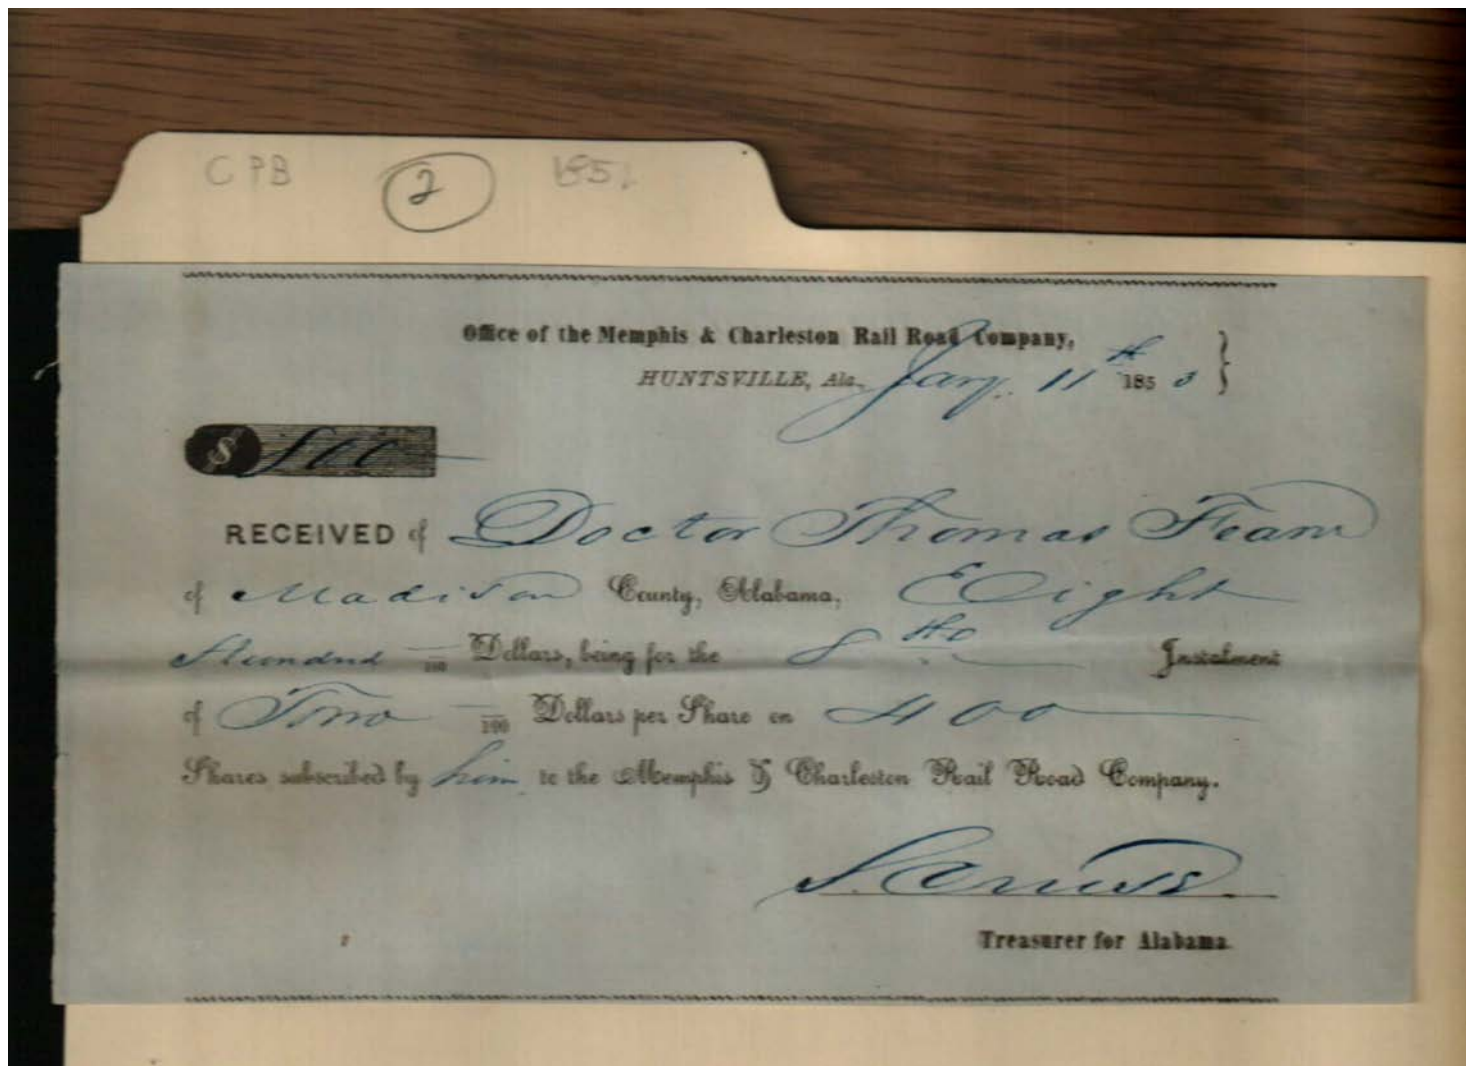 CPB 2 185
Office of the Memphis & Charleston Rail Road Company,
HUNTSVILLE, Ala., Jany. 11th 1853
$ 800
RECEIVED of Doctor Thomas Fearn
of Madison County, Alabama, Eight
Hundred 100 Dollars, being for the 8th Instalment
of Two 100 Dollars per Share on 400
Shares subscribed by him to the Memphis & Charleston Rail Road Company.
S. Cruse
Treasurer for Alabama.